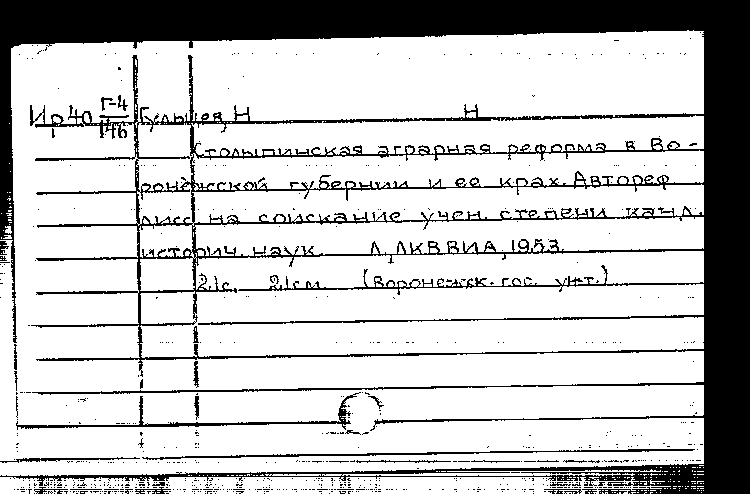 Ир 40 Г-4/146 Гульцев, Н Н
Столыпинская аграрная реформа в Во-
ронежской губернии и ее крах. Автореф
дисс на соискание учен. степени канд.
историч. наук. Л, ЛКВВИА, 1953.
21с. 21см. (Воронежск. гос. ун-т.)